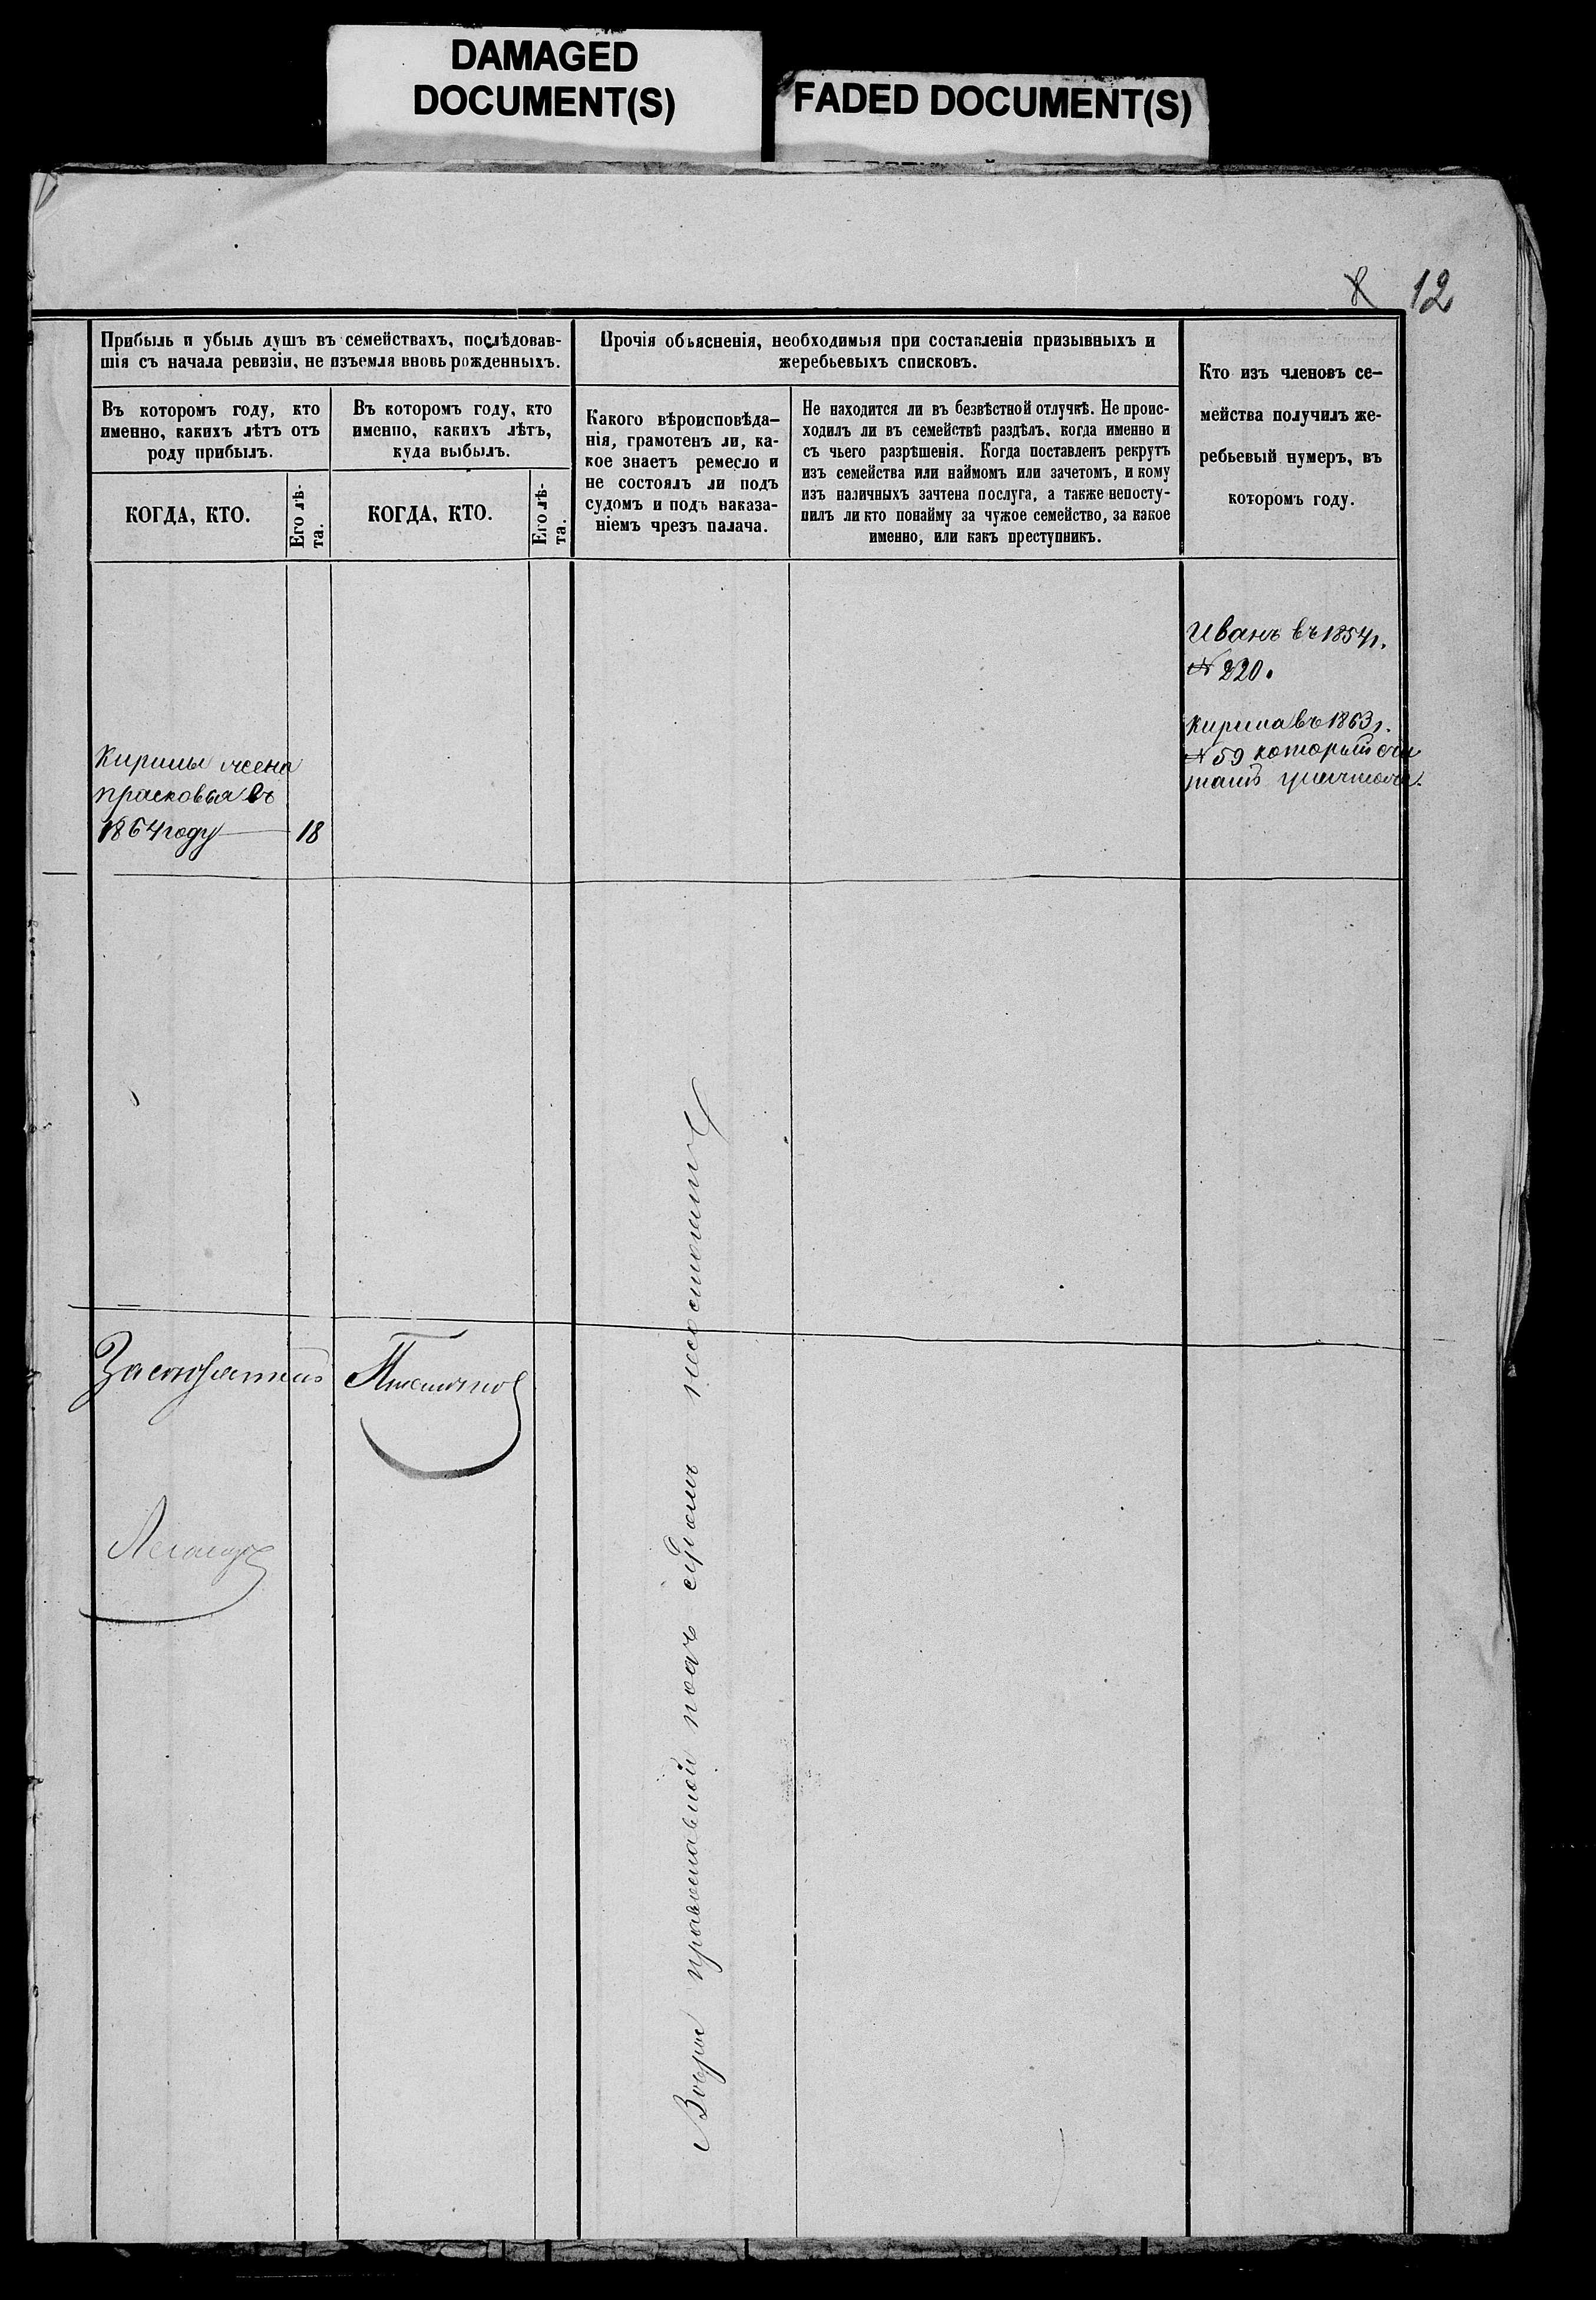 DAMAGED
DOCUMENT(S)
FADED DOCUMENT(S)
8 12
Прибыль и убыль душъ въ семействахъ, послѣдовав-
шія съ начала ревизіи, не изъемля вновь рожденныхъ.
Въ которомъ году, кто
именно, какихъ лѣтъ отъ
роду прибылъ.
КОГДА, КТО.
Его лѣ-
та.
Въ которомъ году, кто
именно, какихъ лѣтъ,
куда выбылъ.
КОГДА, КТО.
Его лѣ-
та.
Прочія объясненія, необходимыя при составленіи призывныхъ и
жеребьевыхъ списковъ.
Какого вѣроисповѣда-
нія, грамотенъ ли, ка-
кое знаетъ ремесло и
не состоялъ ли подъ
судомъ и подъ наказа-
ніемъ чрезъ палача.
Не находится ли въ безвѣстной отлучкѣ. Не проис-
ходилъ ли въ семействѣ раздѣлъ, когда именно и
съ чьего разрѣшенія. Когда поставленъ рекрутъ
изъ семейства или наймомъ или зачетомъ, и кому
изъ наличныхъ зачтена послуга, а также непосту-
пилъ ли кто понайму за чужое семейство, за какое
именно, или какъ преступникъ.
Кто изъ членовъ се-
мейства получилъ же-
ребьевый нумеръ, въ
которомъ году.
Иванъ въ 1854 г.
№ 220.
Кирила въ 1863 г.
№ 59 который
Кирилы жена
прасковья въ
1864 году 18
православной подъ судомъ несостоитъ